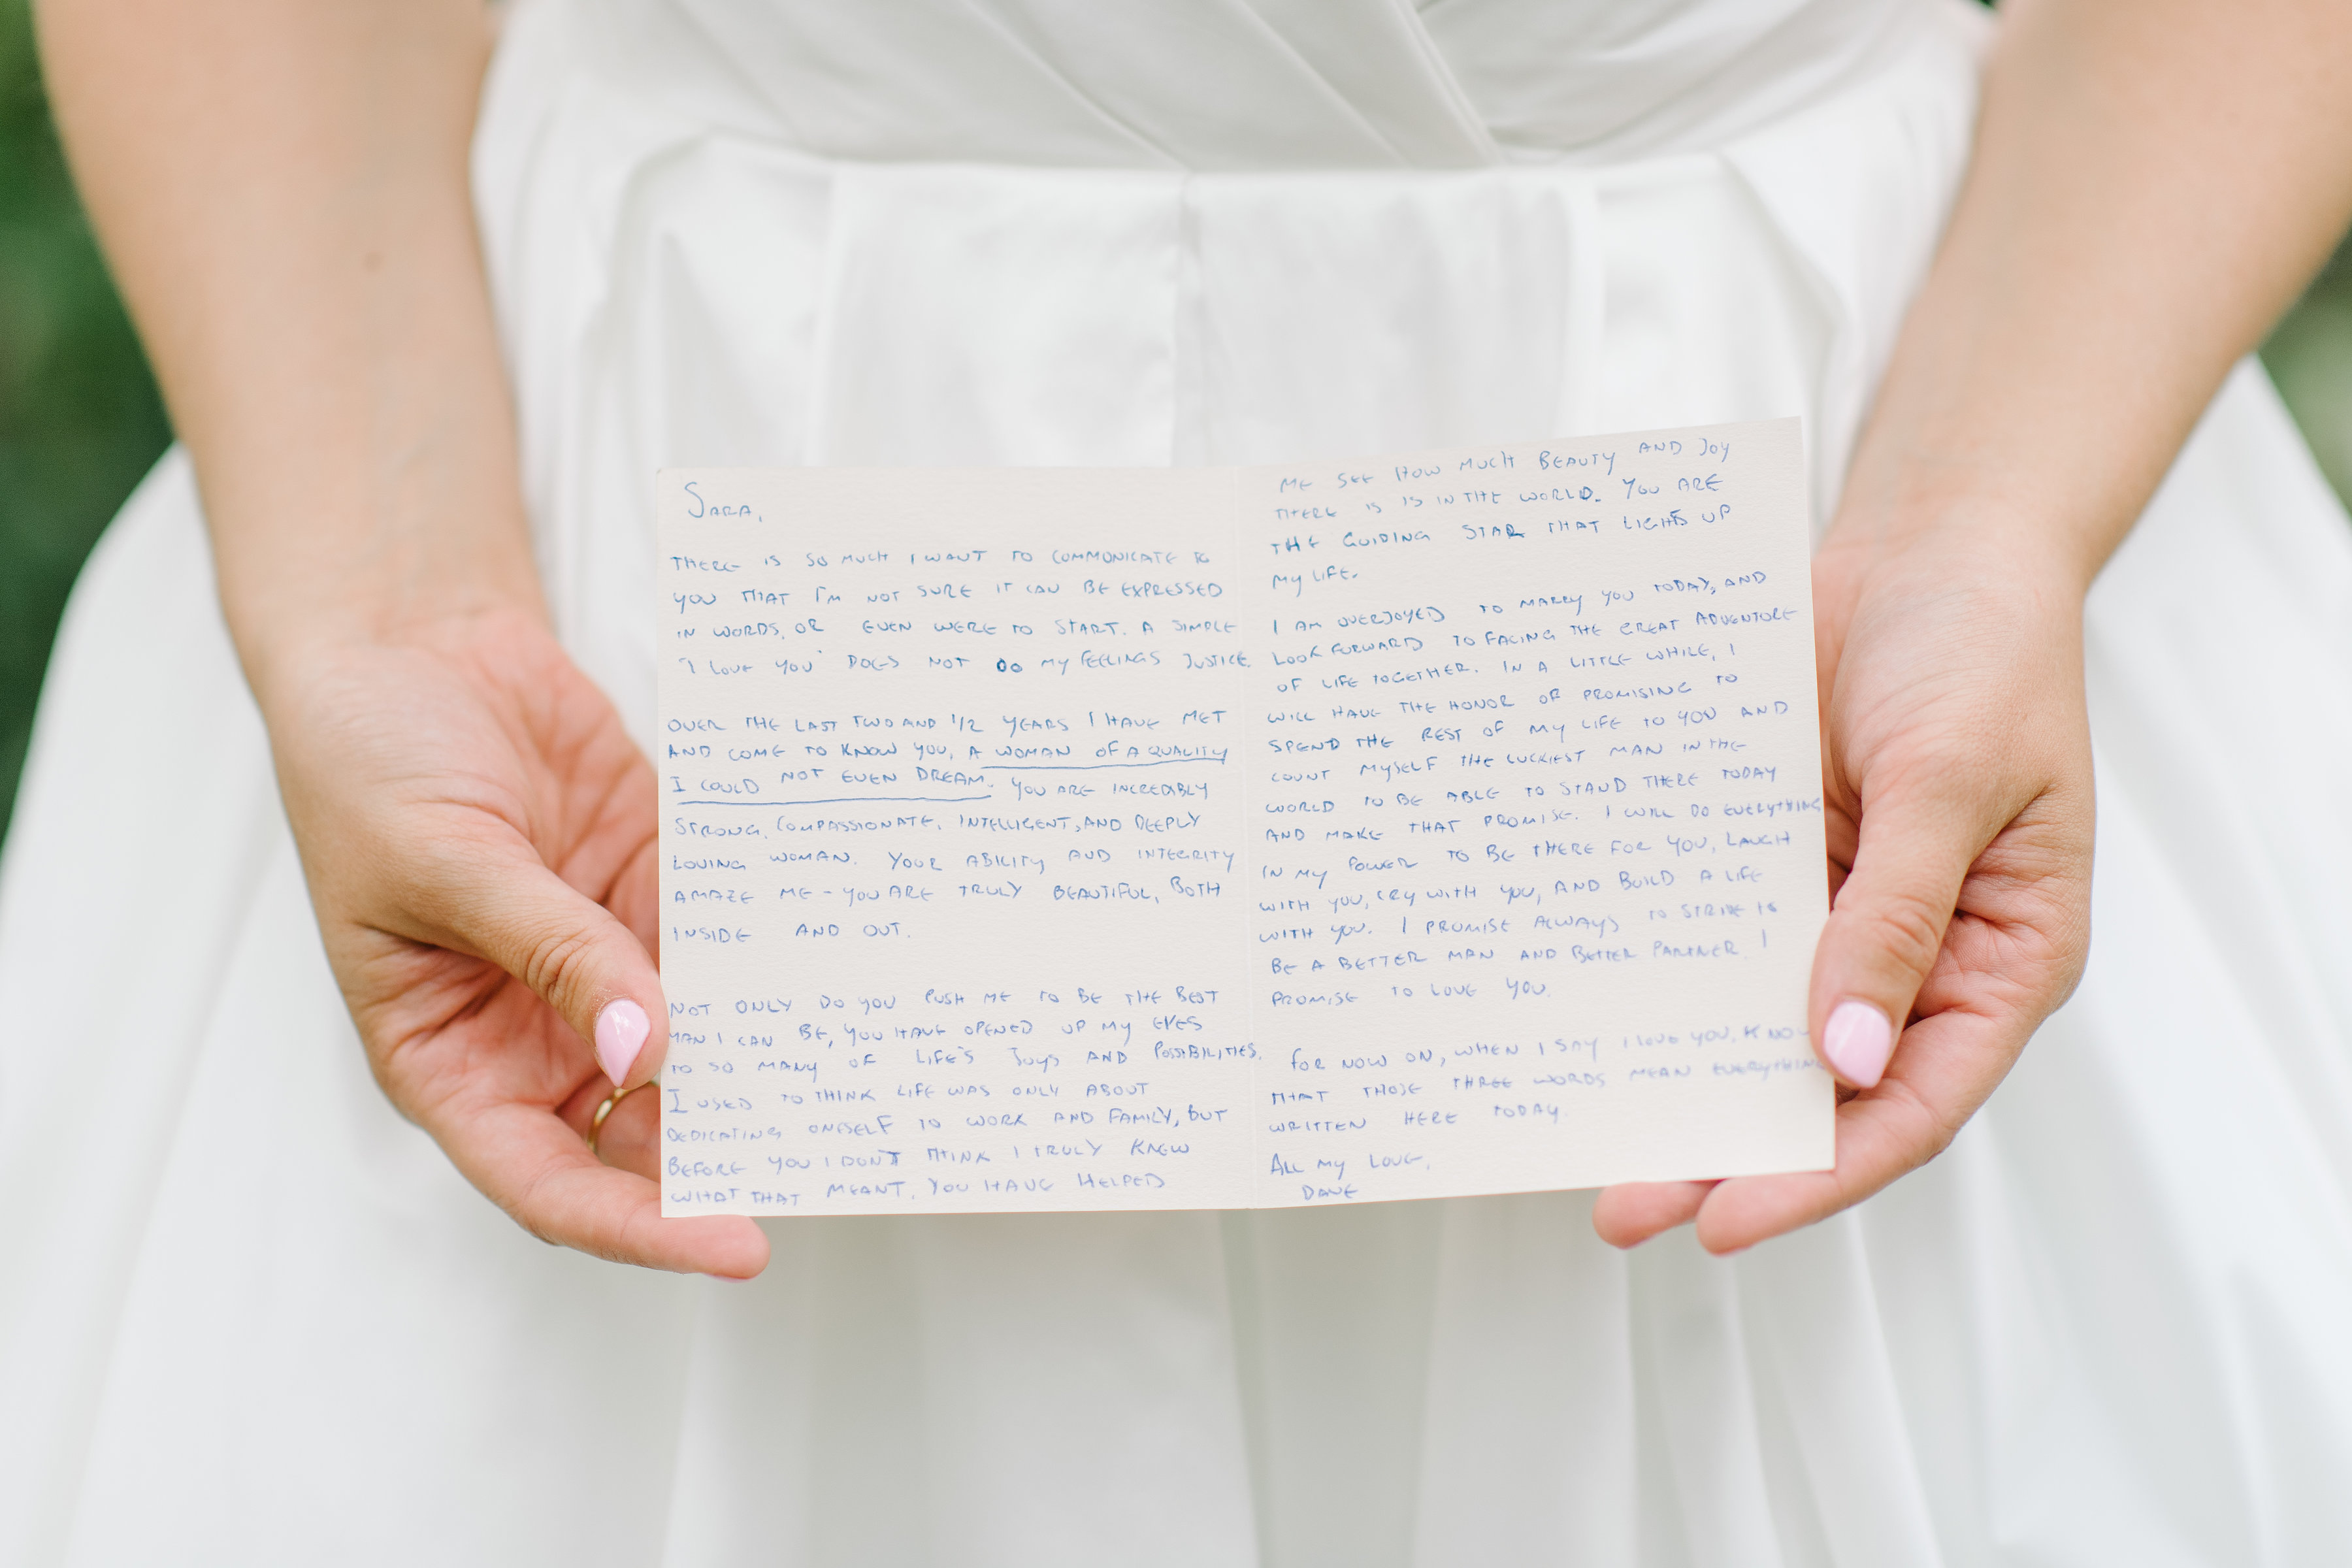 SARA,
THERE IS SO MUCH I WANT TO COMMUNICATE TO
YOU THAT I'M NOT SURE IT CAN BE EXPRESSED
IN WORDS, OR EVEN WERE TO START. A SIMPLE
"I LOVE YOU" DOES NOT DO MY FEELINGS JUSTICE.
OVER THE LAST TWO AND 1/2 YEARS I HAVE MET
AND COME TO KNOW YOU, A WOMAN OF A QUALITY
I COULD NOT EVEN DREAM. YOU ARE INCREDIBLY
STRONG, COMPASSIONATE, INTELLIGENT, AND DEEPLY
LOVING WOMAN. YOUR ABILITY AND INTEGRITY
AMAZE ME - YOU ARE TRULY BEAUTIFUL, BOTH
INSIDE AND OUT.
NOT ONLY DO YOU PUSH ME TO BE THE BEST
MAN I CAN BE, YOU HAVE OPENED UP MY EYES
TO SO MANY OF LIFE'S JOYS AND POSSIBILITIES.
I USED TO THINK LIFE WAS ONLY ABOUT
DEDICATING ONESELF TO WORK AND FAMILY, BUT
BEFORE YOU I DON'T THINK I TRULY KNEW
WHAT THAT MEANT. YOU HAVE HELPED
ME SEE HOW MUCH BEAUTY AND JOY
THERE IS IS IN THE WORLD. YOU ARE
THE GUIDING STAR THAT LIGHTS UP
MY LIFE.
I AM OVERJOYED TO MARRY YOU TODAY, AND
LOOK FORWARD TO FACING THE GREAT ADVENTURE
OF LIFE TOGETHER. IN A LITTLE WHILE, I
WILL HAVE THE HONOR OF PROMISING TO
SPEND THE REST OF MY LIFE TO YOU AND
COUNT MYSELF THE LUCKIEST MAN IN THE
WORLD TO BE ABLE TO STAND THERE TODAY
AND MAKE THAT PROMISE. I WILL DO EVERYTHING
IN MY POWER TO BE THERE FOR YOU, LAUGH
WITH YOU, CRY WITH YOU, AND BUILD A LIFE
WITH YOU. I PROMISE ALWAYS TO STRIVE TO
BE A BETTER MAN AND BETTER PARTNER. I
PROMISE TO LOVE YOU.
FOR NOW ON, WHEN I SAY I LOVE YOU, KNOW
THAT THOSE THREE WORDS MEAN EVERYTHING
WRITTEN HERE TODAY.
ALL MY LOVE,
DANE